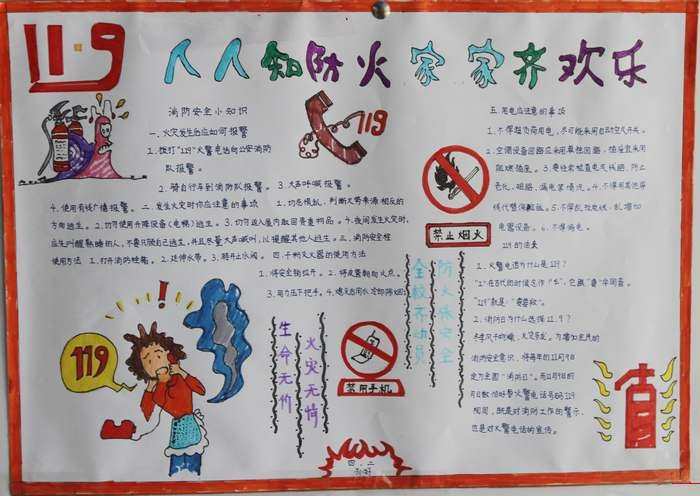 11·9
人人知防火家家齐欢乐
消防安全小知识
一、火灾发生后应如何报警
1.拨打"119"火警电话向公安消防
队报警。
2.骑自行车到消防队报警。3.大声呼喊报警。
4.使用有线广播报警。二、发生火灾时你应注意的事项 1.切忌慌乱，判断火势来源，相反的
方向逃生。2.切勿使用升降设备(电梯)逃生。3.切勿返入屋内取回贵重物品。4.夜间发生火灾时，
应先叫醒熟睡的人，不要只顾自己逃生，并且尽量大声喊叫，以提醒其他人逃生。三、消防安全栓
使用方法 1.打开消防栓箱。2.延伸水带。3.将开止水阀。四、干粉灭火器的使用方法
1.将安全销拉开。2.将皮管朝向火点。
3.用力压下把手。4.熄灭后用水冷却除烟。
119
五、用电应注意的事项
1.不得超负荷用电，尽可能采用自动空气开关。
2.空调设备回路应采用单独回路，
3.要经常检查电气线路，防止
老化、短路、漏电等情况。4.不得用其他导
线代替保险丝。5.不得乱拉电线，乱增加
电器设备。6.不得漏电。
禁止烟火
119的由来
1、火警电话为什么是119？
2、消防日为什么选择11.9？
消防安全意识，将每年的11月9日
定为全国"消防日"。与11月9日的
月日数恰好与火警电话号码119
相同，既是对消防工作的警示，
也是对火警电话的宣传。
119
生命无价
火灾无情
禁用手机
全校齐动员
防火保安全
四.二